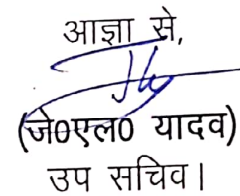 आज्ञा से,
(जे0एल0 यादव)
उप सचिव।